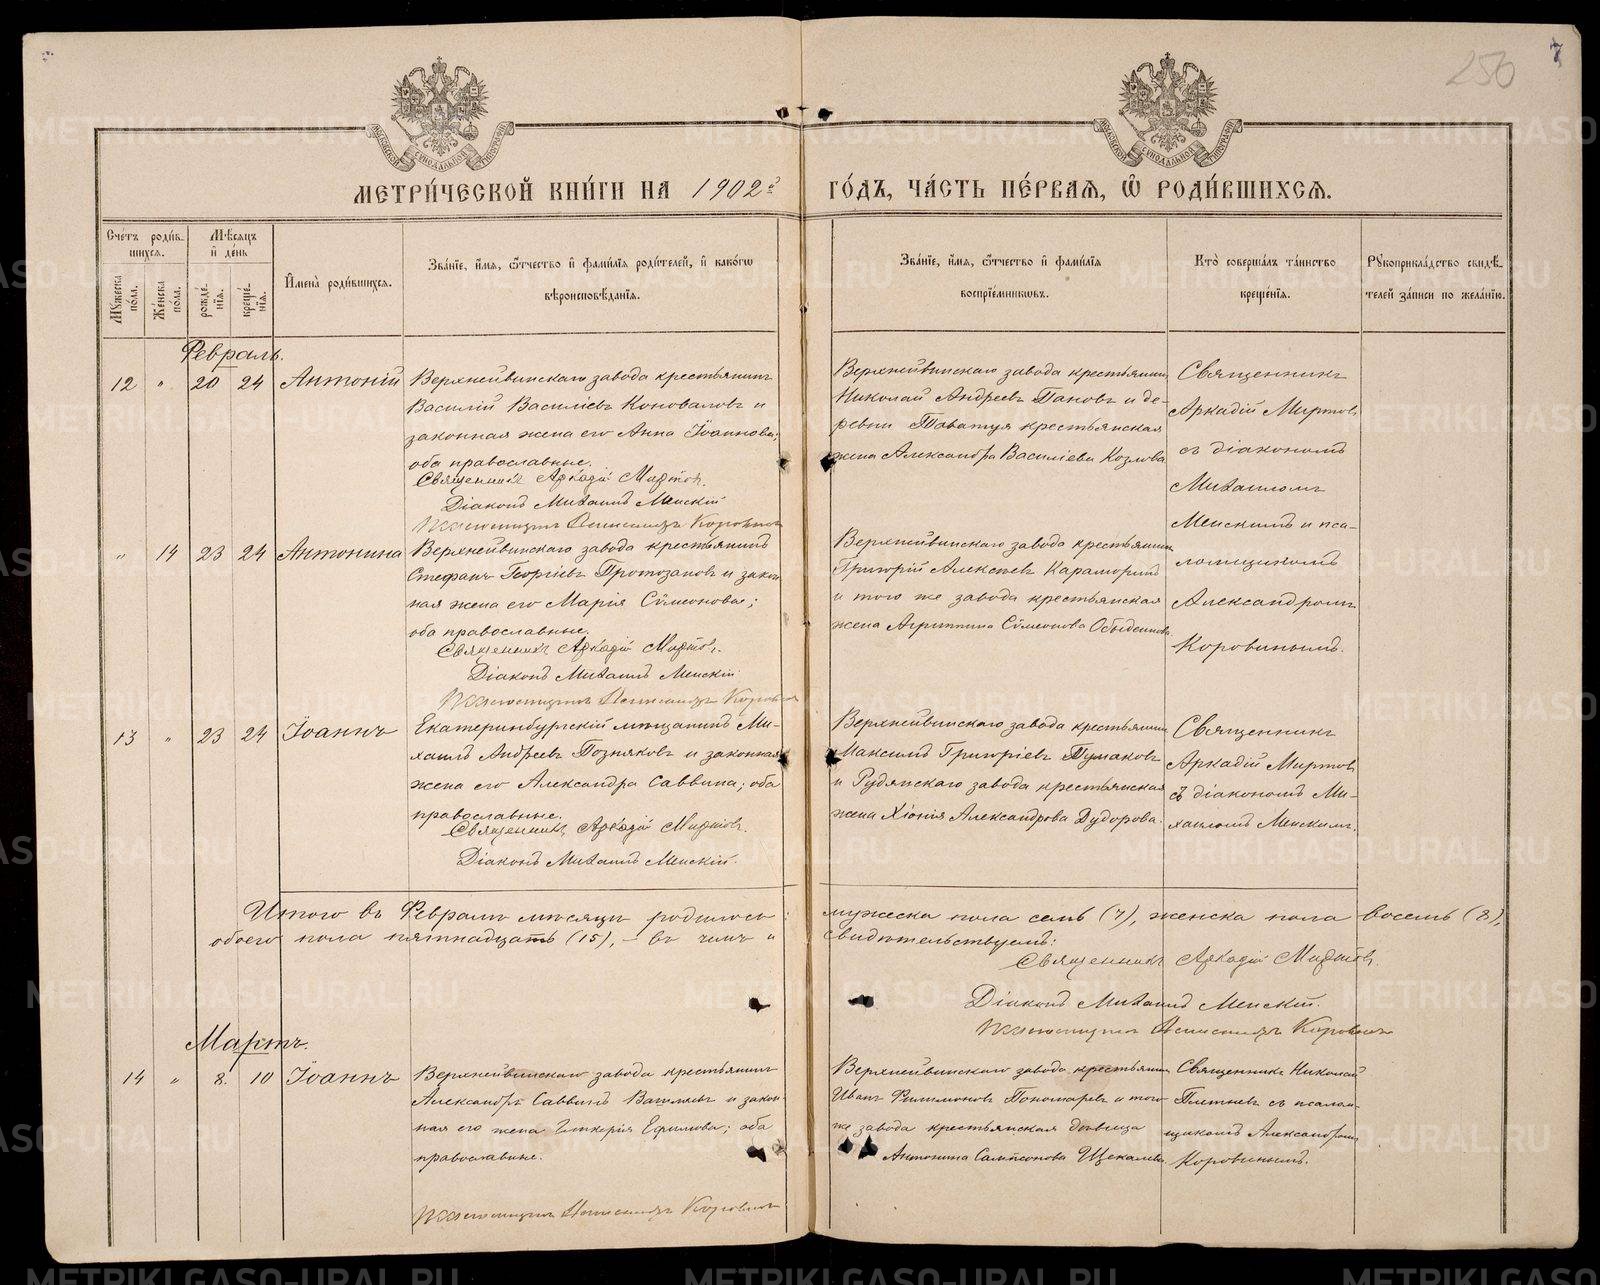 256
7
МОСКОВСКОЙ СУНОДАЛЬНОЙ ТИПОГРАФІИ
МОСКОВСКОЙ СУНОДАЛЬНОЙ ТИПОГРАФІИ
МЕТРИ́ЧЕСКОЙ КНИ́ГИ НА 1902й ГО́ДЪ, ЧА́СТЬ ПЕ́РВАѦ, Ѿ РОДИ́ВШИХСѦ.
Сче́тъ роди́в-
шихсѧ.
Мꙋжеска по́ла.
Же́нска по́ла.
Мѣ́сѧцъ
и҆ де́нь
рожде́-
нїѧ.
креще́-
нїѧ.
И҆мена̀ роди́вшихсѧ.
Зва́нїе, и҆́мѧ, ѻ҆́тчество и҆ фами́лїѧ роди́телей, и҆ како́гѡ
вѣроисповѣ́данїѧ.
Зва́нїе, и҆́мѧ, ѻ҆́тчество и҆ фами́лїѧ
воспрїе́мникѡвъ.
Кто̀ соверша́лъ та́инство
креще́нїѧ.
Рꙋкоприкла́дство свидѣ́-
телей за́писи по жела́нїю.
Февраль.
12 " 20 24 Антоній
Верхнейвинскаго завода крестьянинъ
Василій Василіевъ Коноваловъ и
законная жена его Анна Іоаннова;
оба православные.
Священникъ Аркадій Миртовъ.
Діаконъ Михаилъ Менскій
Верхнейвинскаго завода крестьянинъ
Николай Андреевъ Пановъ и де-
ревни Таватуя крестьянская
жена Александра Василіева Козлова
Священникъ
Аркадій Миртовъ
съ діакономъ
Михаиломъ
Менскимъ и пса-
ломщикомъ
Александромъ
Коровинымъ.
" 14 23 24 Антонина
Верхнейвинскаго завода крестьянинъ
Стефанъ Георгіевъ Протозановъ и закон-
ная жена его Марія Сѵмеонова;
оба православные.
Священникъ Аркадій Миртовъ.
Діаконъ Михаилъ Менскій
Верхнейвинскаго завода крестьянинъ
Григорій Алексѣевъ
и того же завода крестьянская
жена Агриппина Сѵмеонова
13 " 23 24 Іоаннъ
Екатеринбургскій мѣщанинъ Ми-
хаилъ Андреевъ Позняковъ и законная
жена его Александра Саввина; оба
православные.
Священникъ Аркадій Миртовъ.
Діаконъ Михаилъ Менскій.
Верхнейвинскаго завода крестьянинъ
Максимъ Григоріевъ Тумаковъ
и Рудянскаго завода крестьянская
жена Хіонія Александрова Дудорова.
Священникъ
Аркадій Миртовъ
съ діакономъ Ми-
хаиломъ Менскимъ.
Итого въ Февралѣ мѣсяцѣ родилось: мужеска пола семь (7), женска пола восемь (8),
обоего пола пятнадцать (15), – въ чемъ и свидѣтельствуемъ:
Священникъ Аркадій Миртовъ.
Діаконъ Михаилъ Менскій.
Мартъ.
14 " 8. 10 Іоаннъ
Верхнейвинскаго завода крестьянинъ
Александръ Саввинъ и закон-
ная его жена Гликерія Ефимова; оба
православные.
Верхнейвинскаго завода крестьянинъ
Иванъ Филимоновъ Пономаревъ и того
же завода крестьянская дѣвица
Антонина Сампсонова Щекалева.
Священникъ Николай
Плетневъ съ псалом-
щикомъ Александромъ
Коровинымъ.
METRIKI.GASO-URAL.RU